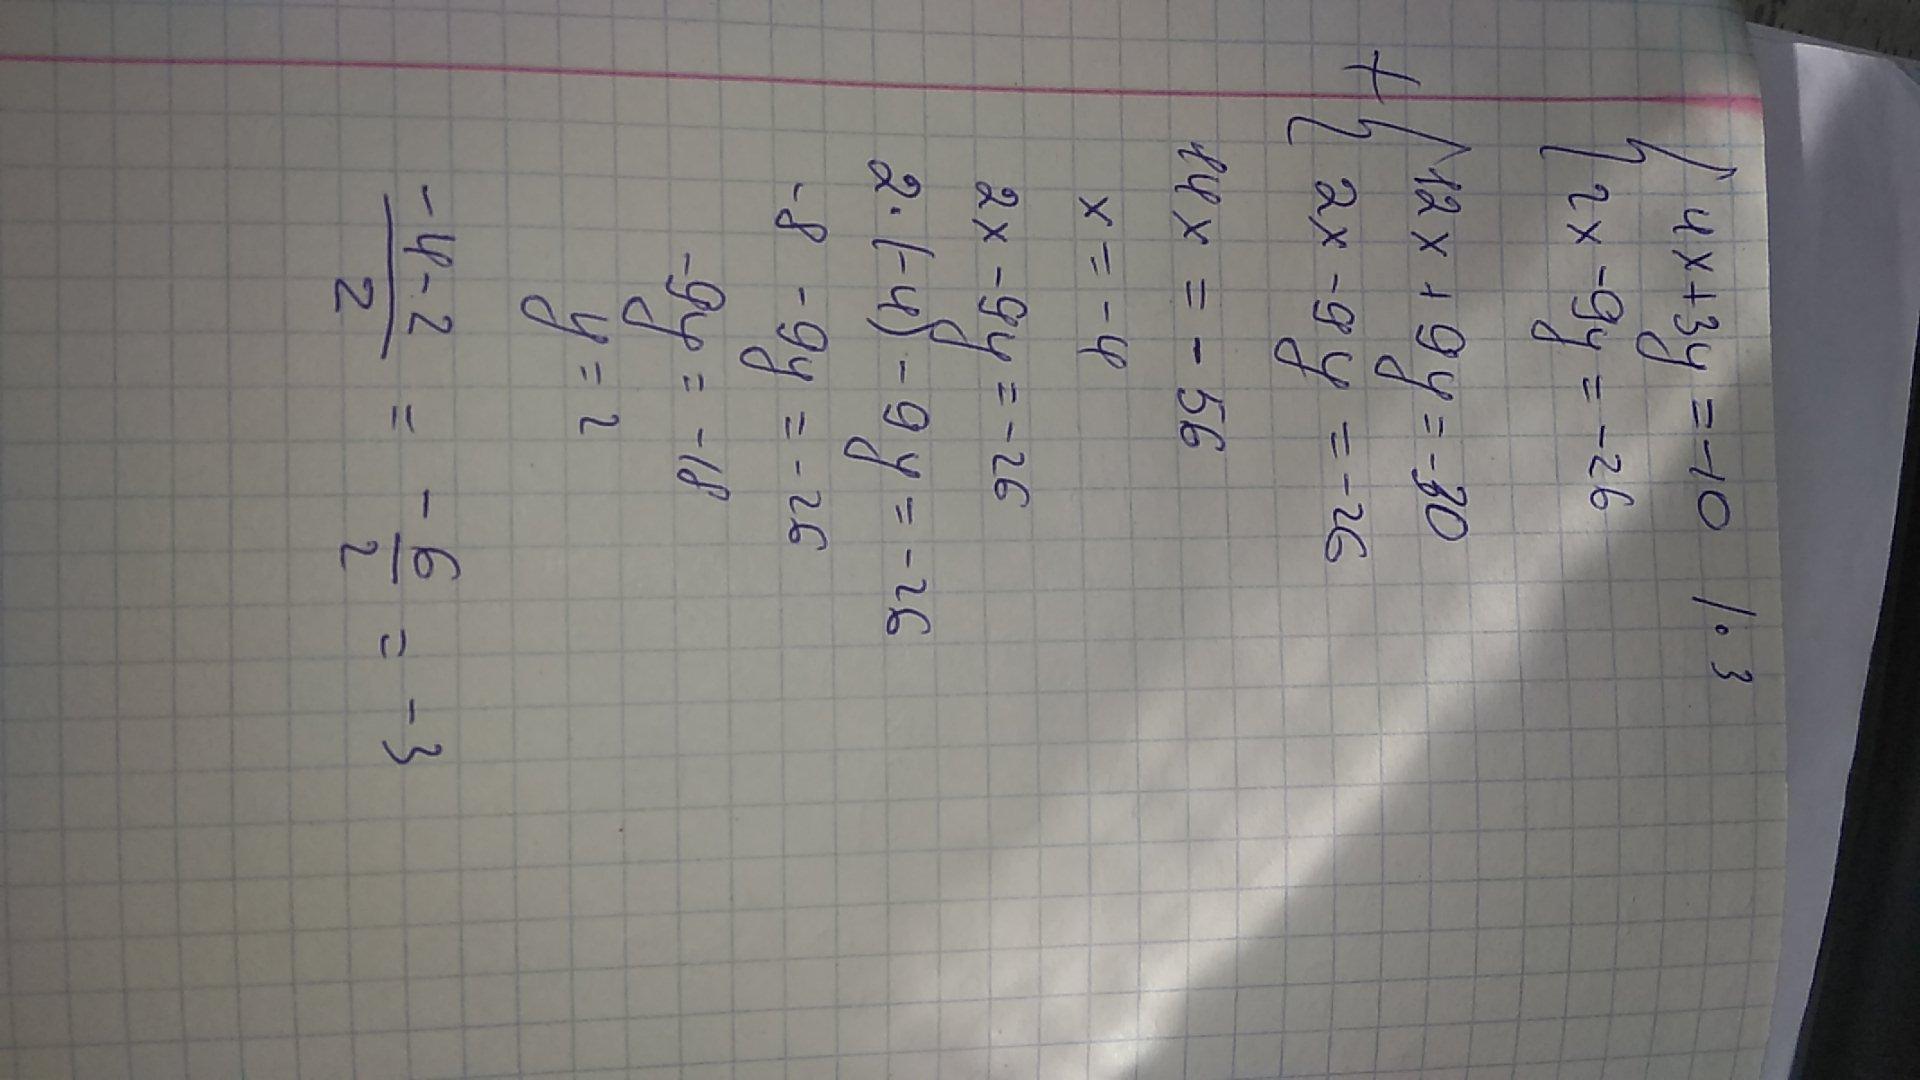 { 4x+3y=-10 /·3
{ 2x-9y=-26
+ { 12x+9y=-30
{ 2x-9y=-26
14x=-56
x=-4
2x-9y=-26
2·(-4)-9y=-26
-8-9y=-26
-9y=-18
y=2
-4-2/2 = -6/2 = -3